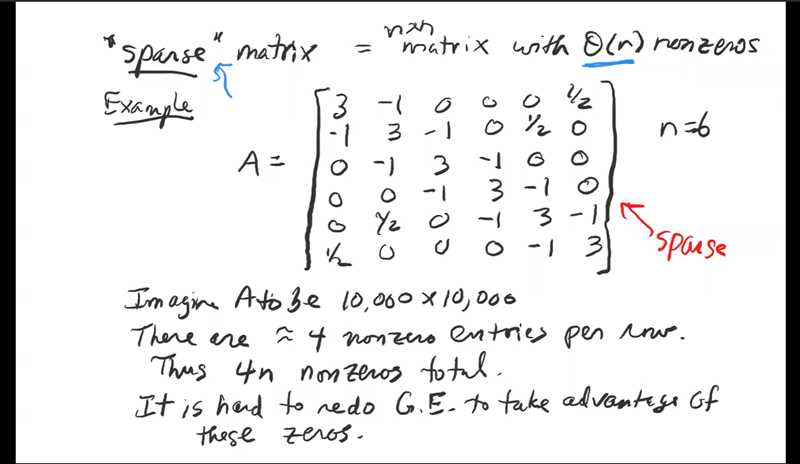 "sparse" matrix = n×n matrix with Θ(n) nonzeros
Example
A =
3 -1 0 0 0 1/2
-1 3 -1 0 1/2 0
0 -1 3 -1 0 0
0 0 -1 3 -1 0
0 1/2 0 -1 3 -1
1/2 0 0 0 -1 3
n=6
sparse
Imagine A to be 10,000 × 10,000
There are ≈ 4 nonzero entries per row.
Thus 4n nonzeros total.
It is hard to redo G.E. to take advantage of
these zeros.